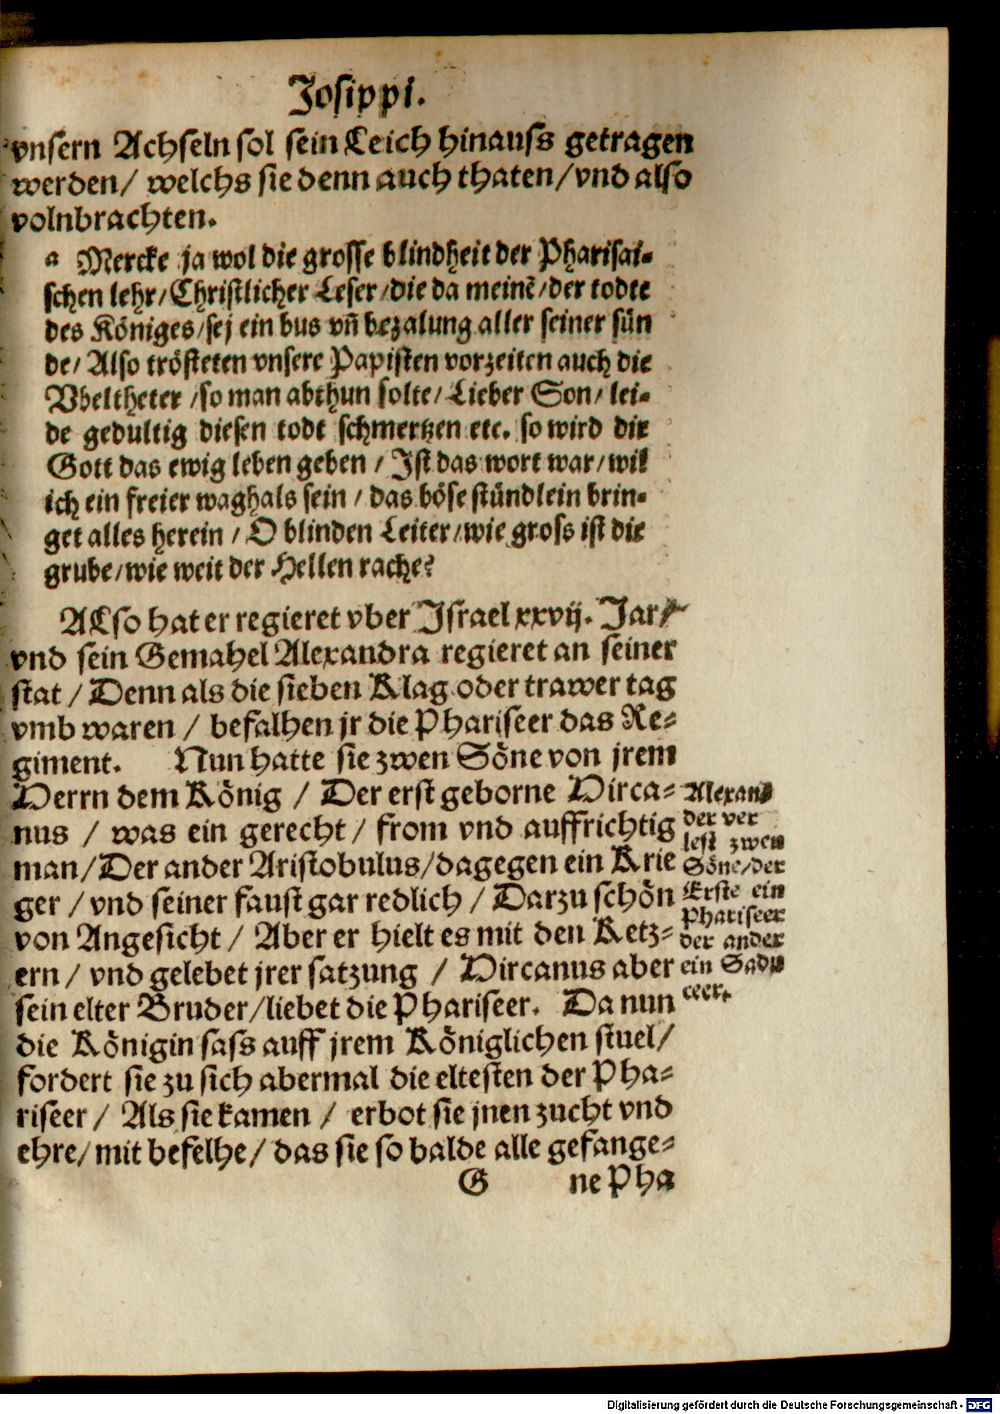 Josippi.
vnsern Achseln sol sein Leich hinauss getragen
werden/ welchs sie denn auch thaten/ vnd also
volnbrachten.
a Mercke ja wol die grosse blindheit der Pharisai-
schen lehr/ Christlicher Leser/ die da meinẽ/ der todte
des Königes/ sej ein bus vñ bezalung aller seiner sün
de/ Also trösteten vnsere Papisten vorzeiten auch die
Vbeltheter/ so man abthun solte/ Lieber Son/ lei-
de gedultig diesen todt schmertzen etc. so wird dir
Gott das ewig leben geben/ Ist das wort war/ wil
ich ein freier waghals sein/ das böse stündlein brin-
get alles herein/ O blinden Leiter/ wie gross ist die
grube/ wie weit der Hellen rache?
ALso hat er regieret vber Israel xxvij. Jar/
vnd sein Gemahel Alexandra regieret an seiner
stat/ Denn als die sieben Klag oder trawer tag
vmb waren/ befalhen jr die Phariseer das Re-
giment. Nun hatte sie zwen Söne von jrem
Herrn dem König/ Der erst geborne Hirca-
nus/ was ein gerecht/ from vnd auffrichtig
man/ Der ander Aristobulus/ dagegen ein Krie
ger/ vnd seiner faust gar redlich/ Darzu schön
von Angesicht/ Aber er hielt es mit den Ketz-
ern/ vnd gelebet jrer satzung/ Hircanus aber
sein elter Bruder/ liebet die Phariseer. Da nun
die Königin sass auff jrem Königlichen stuel/
fordert sie zu sich abermal die eltesten der Pha-
riseer/ Als sie kamen/ erbot sie jnen zucht vnd
ehre/ mit befelhe/ das sie so balde alle gefange-
G ne Pha
Alexan
der ver
lest zwen
Söne/ der
Erste ein
Phariseer
der ander
ein Sadu
ceer.
Digitalisierung gefördert durch die Deutsche Forschungsgemeinschaft - DFG